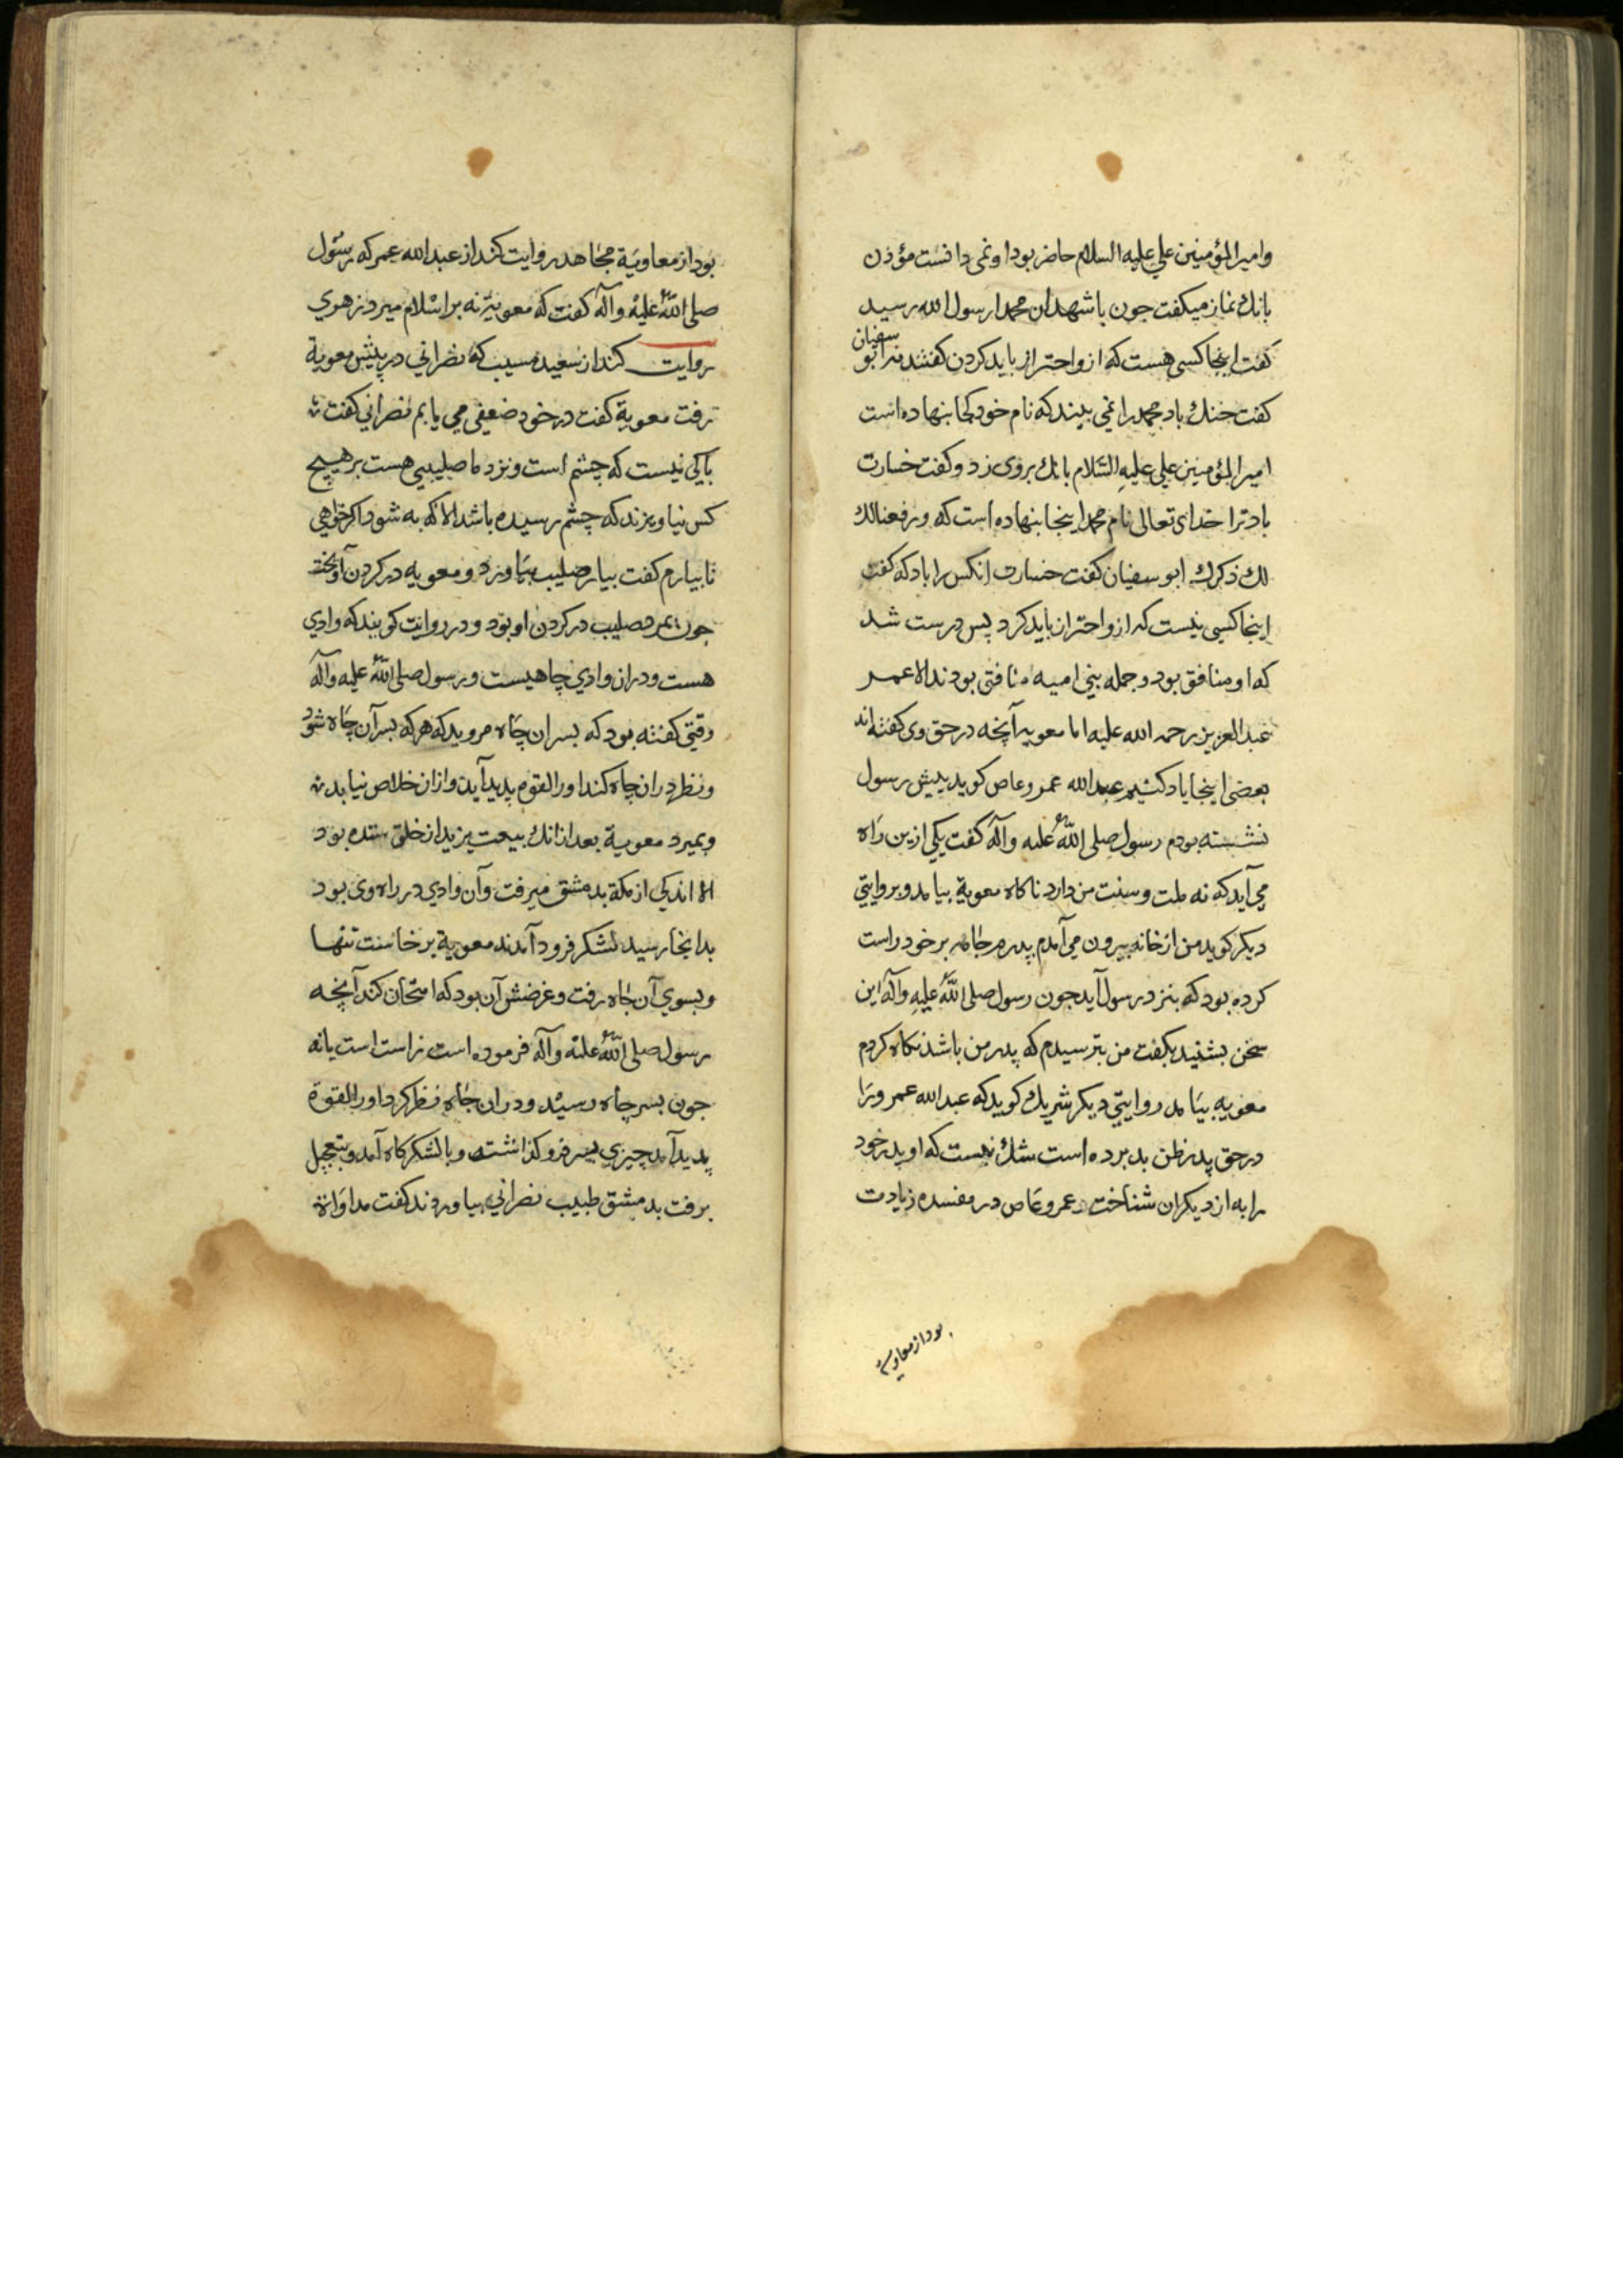 وامیرالمؤمنین علي علیه السلام حاضر بود او نمی دانست مؤذن
بانك نماز میکفت جون باشهدان محمدا رسول الله رسید
کفت اینجا کسی هست که ازو احتراز باید کردن کفتند نه ابو سفیان
کفت خنك باد محمد را نمی بیند که نام خود کجا بنهاده است
امیرالمؤمنین علي علیهِ السّلام بانك بروی زد و کفت خسارت
باد ترا خدای تعالی نام محمد اینجا بنهاده است که ورفعنا لك
لك ذکرك ابو سفیان کفت خسارت انکس را باد که کفت
اینجا کسیی نیست که ازو احتراز باید کرد پس درست شد
که او منافق بود و جمله بني امیه منافق بودند الا عمر
عبدالعزیز رحمه الله علیه اما معویه آنچه در حق وی کفته اند
بعضی اینجا یاد کنیم عبدالله عمرو عاص کوید پیش رسول
نشسته بودم رسول صلی اللّه علیه وآله کفت یکي ازین رَاه
مي آید که نه ملت و سنت من دارد ناکاه معویة بیامد و بروایتي
دیکر کوید من از خانه بیرون می آمدم پدرم جامه بر خود راست
کرده بود که بنزد رسول آید جون رسول صلی اللّه علیهِ وآله این
سخن بشنید بکفت من بترسیدم که پدر من باشد نکاه کردم
معویه بیَامد روایتي دیکر شریك کوید که عبدالله عمرو برا
در حق پدر ظن بد برده است شك نیست که او پدر خود
را به از دیکران شناخت عمرو عَاص در مفسده زیادت
بود از معاویه
بود از معاویَة مجَاهد روایت کند از عبدالله عمر که رسُول
صلی اللّه علیْهِ وآله کفت که معویَة نه بر اسْلام میرد زهري
روایت کند از سعید مسیب که نصراني در پیش معویة
رفت معویة کفت در خود ضعفی مي یابم نصراني کفت
باکي نیست که چشم است و نزد ما صلیبی هست بر هیچ
کس نیاویزند که چشم رسیده باشد الا که به شود اکر خواهي
تا بیارم کفت بیار صلیب بیَاورد و معویه در کردن آویخت
جون بمرد صلیب در کردن او بود و در روایت کویند که وادي
هست و دران وادي چاهیست و رسول صلی اللّه علیه وآله
وقتي کفته بود که بسر ان چَاه مروید که هر که بسر آن چَاه شود
و نظر دران چاه کند او را لقوه پدید آید و ازان خلاص نیابد
و بمیرد معویة بعد ازانك بیعت یزید از خلق ستده بود
الا اندکي از مکة بدمشق میرفت وآن وادي در راه وی بود
بدانجا رسید لشکر فرود آمدند معویة برخاست تنها
و بسوي آن جَاه رفت و غرضش آن بود که امتحان کند آنچه
رسول صلی اللّه علیْه وآله فرموده است راست است یا نه
جون بسر چاه رسیْد و دران جَاه نظر کرد او را لقوة
پدید آمد چیزي بسر فرو کذاشت و بالشکرکاه آمد و بتعجیل
برفت بدمشق طبیب نصراني بیاوردند کفت مداوَاة